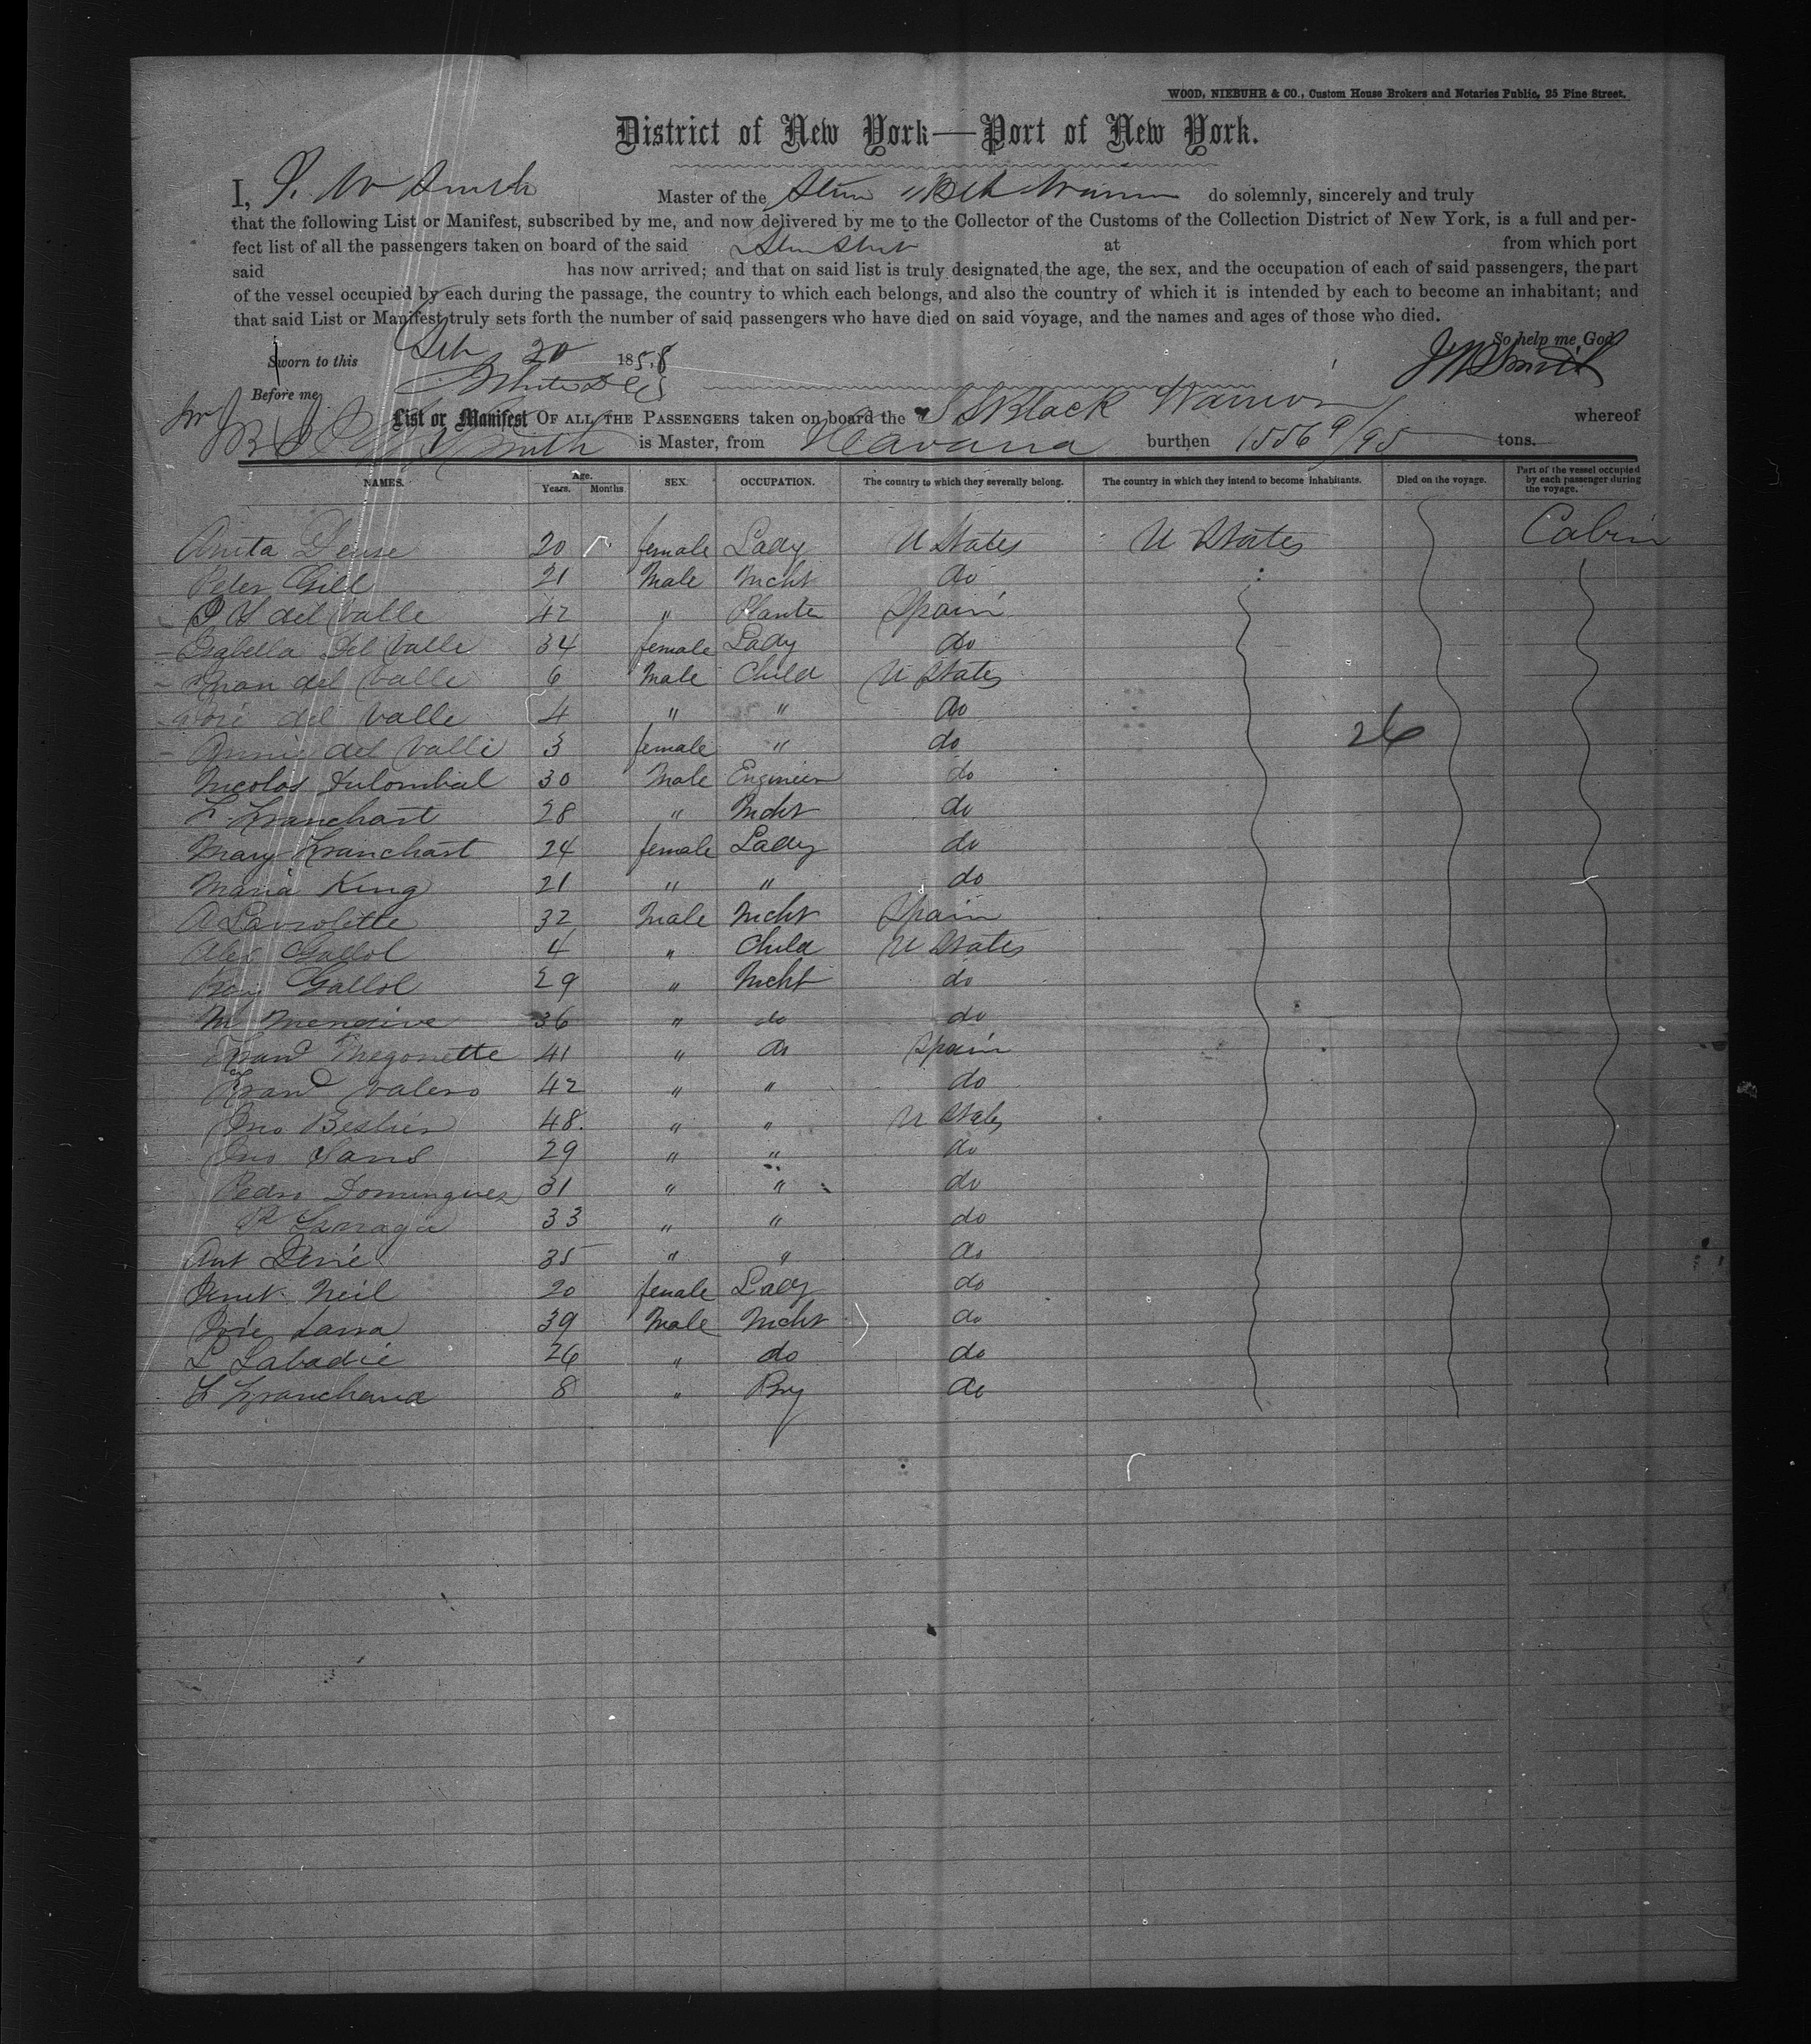 WOOD, NIEBUHR & CO., Custom House Brokers and Notaries Public, 25 Pine Street.
District of New York—Port of New York.
I, J. W Smith Master of the Stm Blk Warrior do solemnly, sincerely and truly
that the following List or Manifest, subscribed by me, and now delivered by me to the Collector of the Customs of the Collection District of New York, is a full and per-
fect list of all the passengers taken on board of the said at from which port
said has now arrived; and that on said list is truly designated the age, the sex, and the occupation of each of said passengers, the part
of the vessel occupied by each during the passage, the country to which each belongs, and also the country of which it is intended by each to become an inhabitant; and
that said List or Manifest truly sets forth the number of said passengers who have died on said voyage, and the names and ages of those who died.
So help me God
Sworn to this Feb 20 1858 J W Smith
Before me
List or Manifest OF ALL THE PASSENGERS taken on board the S S Black Warrior whereof
Smith is Master, from Havana burthen 1556 9/95 tons.
NAMES. Age. Years. Months. SEX. OCCUPATION. The country to which they severally belong. The country in which they intend to become inhabitants. Died on the voyage. Part of the vessel occupied by each passenger during the voyage.
Anita 20 female Lady U States U States Cabin
Peter Gill 21 Male Mcht do
del Valle 42 " Planter Spain
Isabella Del Valle 34 female Lady do
Juan del Valle 6 Male Child U States
José del Valle 4 " " do
Annie del Valle 3 female " do
26
Nicolas 30 Male Engineer do
F. Franchart 28 " Mcht do
Mary Franchart 24 female Lady do
Maria King 21 " " do
A 32 Male Mcht Spain
Alex Gallol 4 " Child U States
Benj Gallol 29 " Mcht do
M Mendive 36 " do do
41 " do Spain
Valero 42 " " do
Jno 48. " " U States
Jno Sans 29 " " do
Pedro Domingues 31 " " do
33 " " do
Ant 35 " " do
Neil 20 female Lady do
José Lara 39 Male Mcht do
L Labadie 26 " do do
F 8 " Boy do